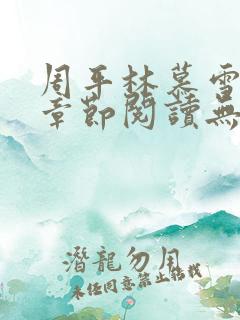 周平林慕雪
章節閱讀無
潛龍勿用
未經同意禁止轉載